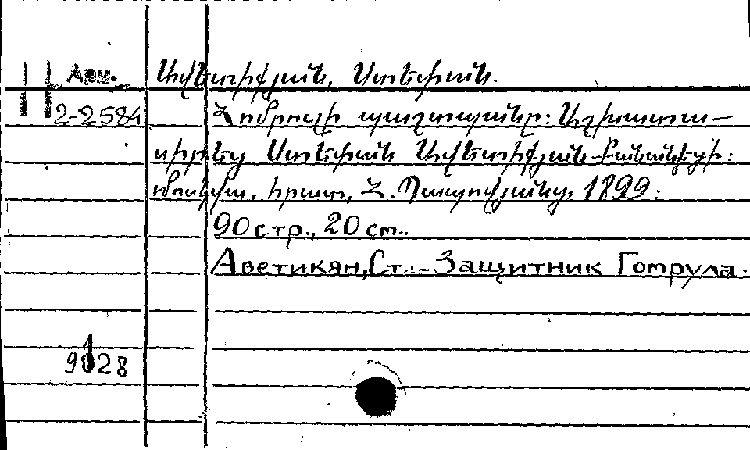 Арм. Ավետիքյան, Ստեփան.
2-2584 Հոմրուլի պաշտպանը: Աշխատա-
սիրեց Ստեփան Ավետիքյան-Քանանեցի:
Մոսկվա, հրատ. Հ. Պապովյանց, 1899:
90 стр., 20 см.
Аветикян, Ст. - Защитник Гомрула.
9028